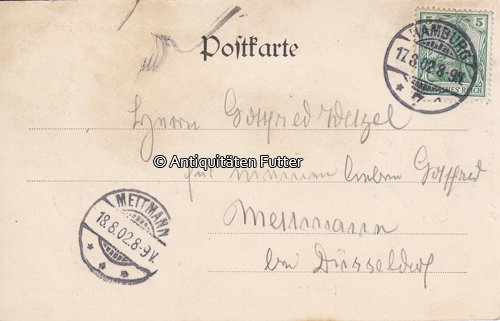 Postkarte
5 5
HAMBURG
17.8.02.8-9N.
* 7 *
REICH
Herrn Gottfried Wetzel
© Antiquitäten Futter
meinen lieben Gottfried
METTMANN
18.8.02.8-9V.
* * *
Mettmann
bei Düsseldorf